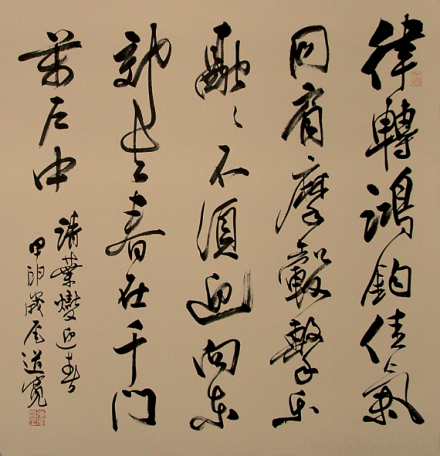 律轉鴻鈞佳氣
同肩摩轂擊樂
融〻不須迎向東
郊去春在千門
萬戶中
清葉燮迎春
卯歲尾道寬